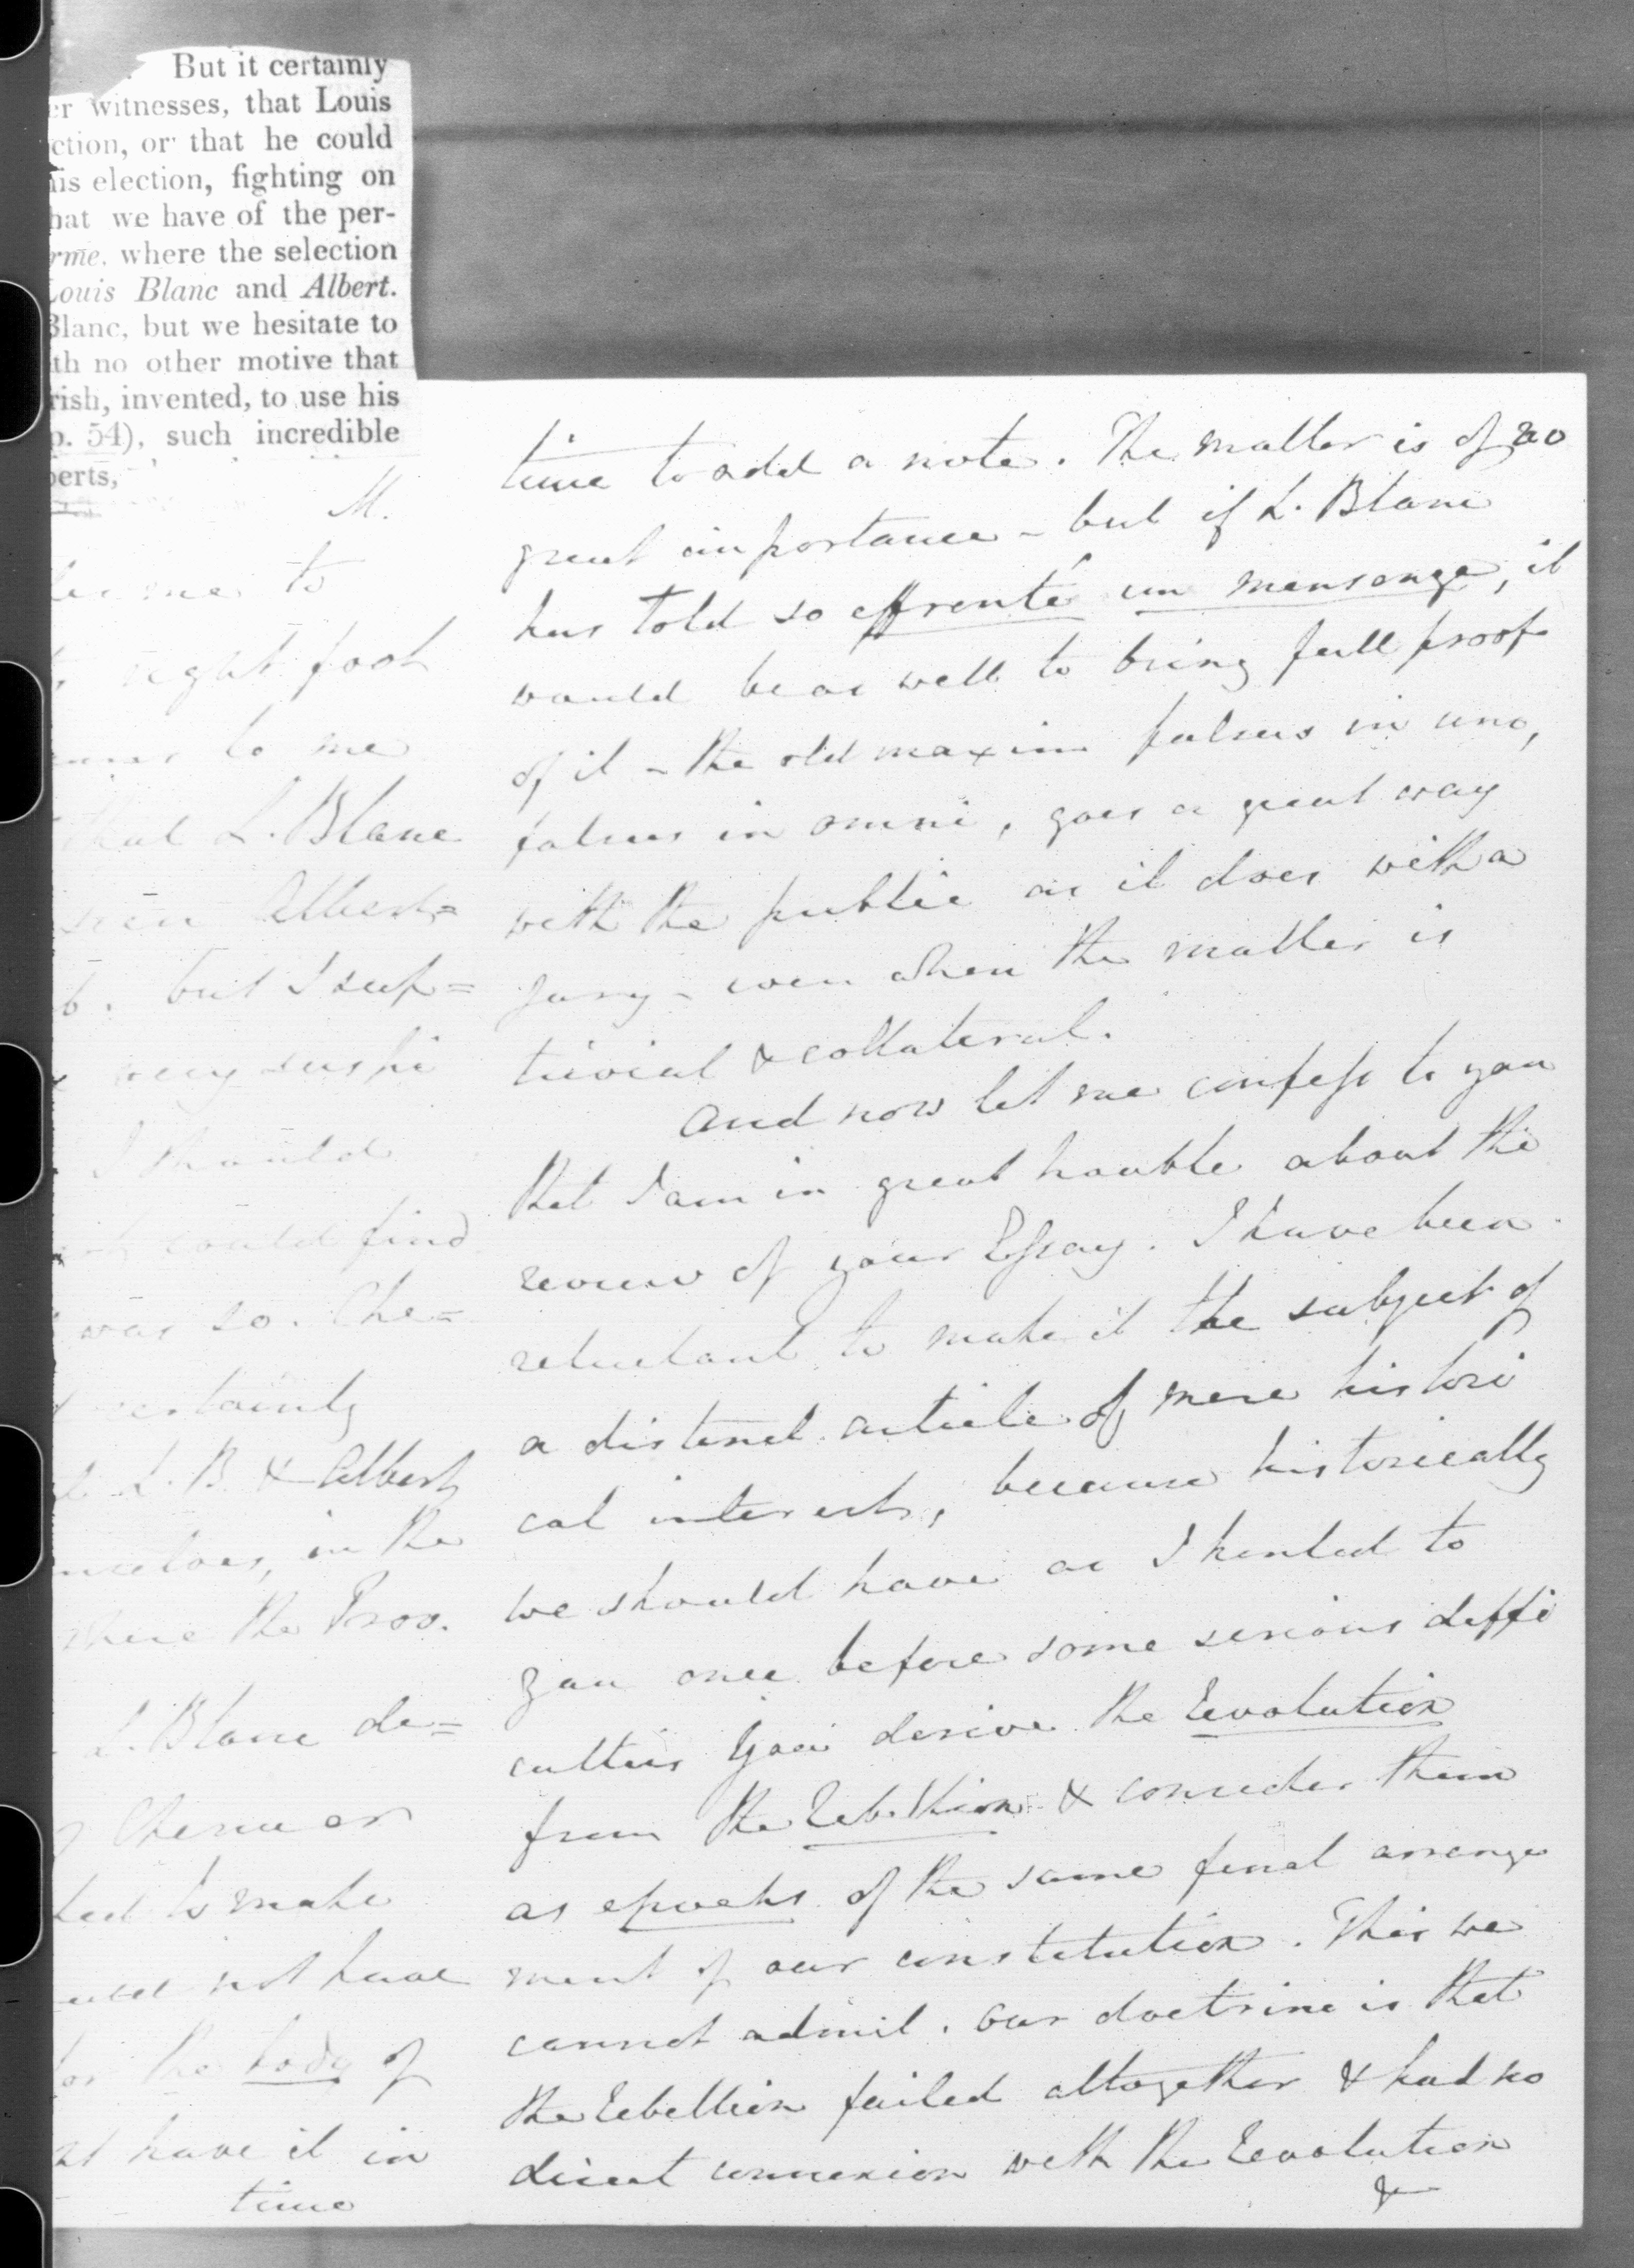 But it certainly
er witnesses, that Louis
ction, or that he could
his election, fighting on
hat we have of the per-
rme, where the selection
Louis Blanc and Albert.
Blanc, but we hesitate to
th no other motive that
rish, invented, to use his
p. 54), such incredible
perts,
M.
to
right foot
to me
that L. Blanc
Albert=
but I sup=
very suspi
I should
could find
was so. Che=
certainly
L. B. & Albert
in the
where the Prov.
L. Blanc de=
to make
not have
the body of
have it in
time
time to add a note. The matter is of no
great importance - but if L. Blanc
has told so effronté un mensonge, it
would be as well to bring full proof
of it - the old maxim falsus in uno,
falsus in omni, goes a great way
with the public as it does with a
jury - even when the matter is
trivial & collateral.
And now let me confess to you
that I am in great trouble about the
review of your Essay. I have been
reluctant to make it the subject of
a distinct article of mere histori
cal interest, because historically
we should have as I hinted to
you once before some serious diffi
culties You derive the Revolution
from the Rebellion & consider them
as epochs of the same final arrange
ment of our constitution. This we
cannot admit. Our doctrine is that
the Rebellion failed altogether & had no
direct connexion with the Revolution
&